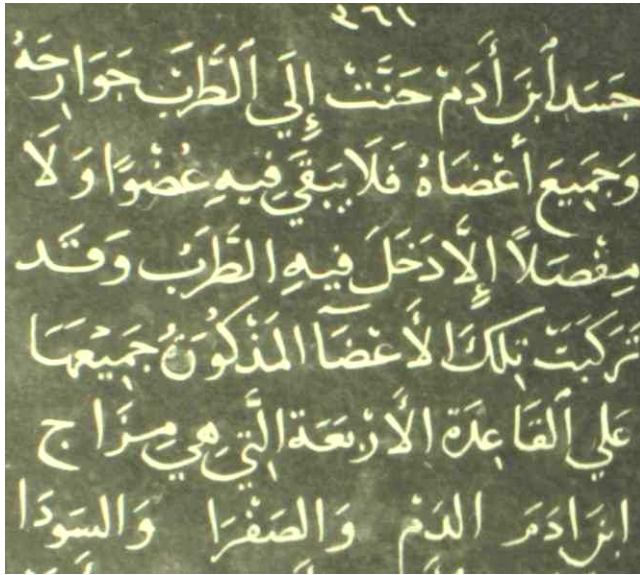 ٣٦١
جَسَد اٱبنَ أَدَمْ حَنَّتْ إِلَي ٱلطَّرَبْ جَوَارِحَهُ
وَجَمِيعَ أعْضَاهُ فَلَا يَبقَي فِيهِ عُضْوًا وَلَا
مِفْصَلاً إِلَّا دَخَلَ فيهِ الطَّرَبُ وَقَد
تَرَكَبَتْ تِلكَ الأَعْضَآ المَذكُوَرَةُ جَمِيْعَهَا
عَلي ٱلقَاعِدَة الأَرْبَعَة الَّتِي هِي مِزَاج
ابنَ ادَمَ الدَمْ وَالصَفْرَا وَالسَودَا